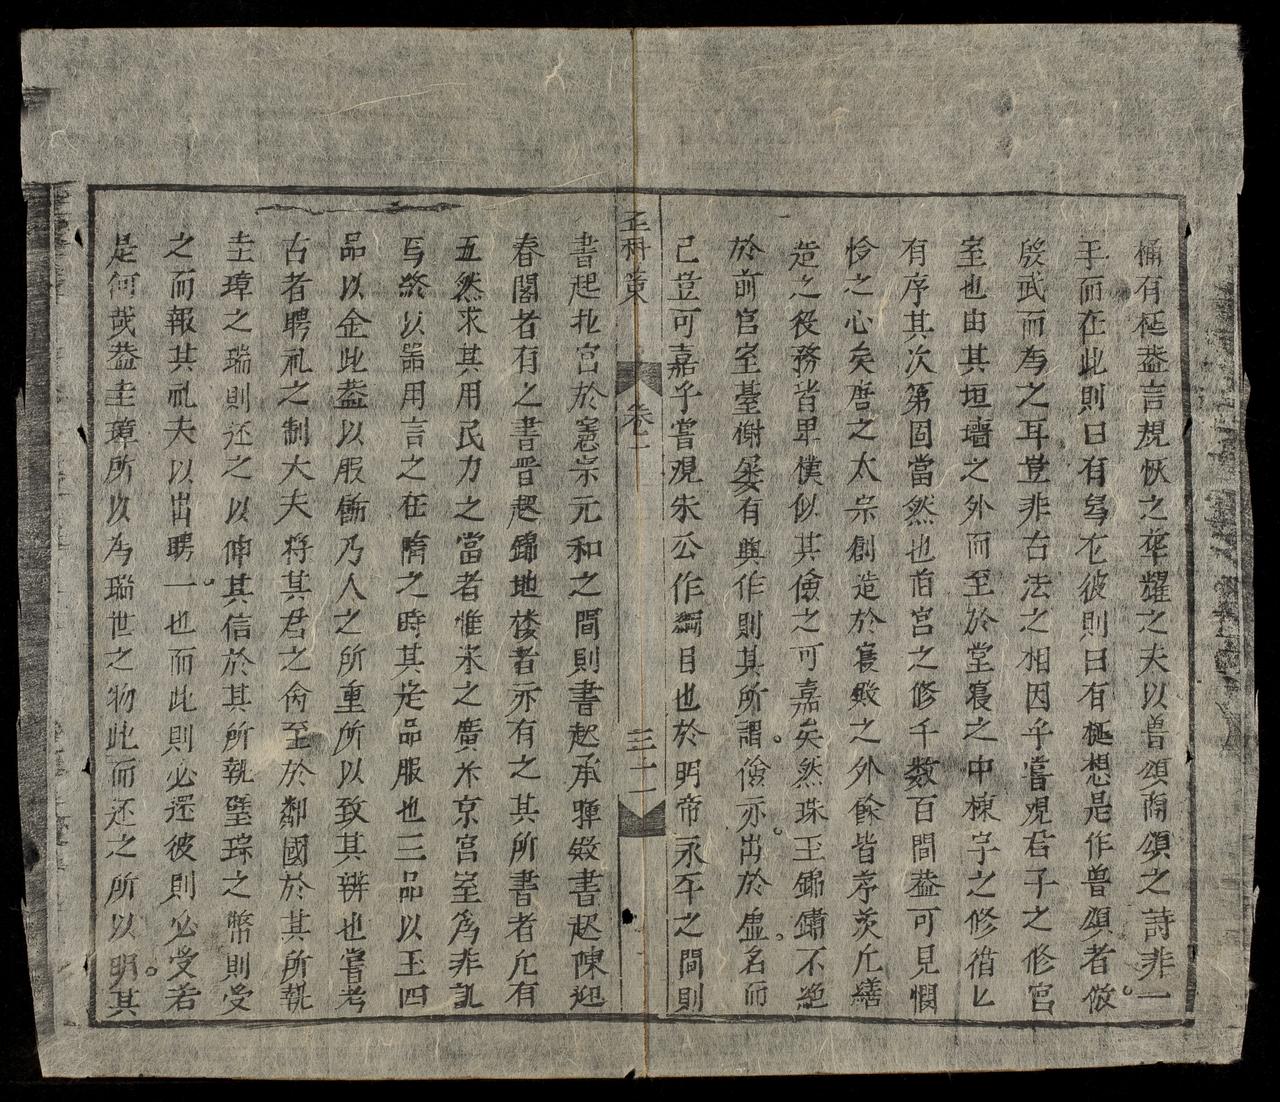 桷有梴蓋言規恢之華耀之夫以魯頌商頌之詩非一
手而在此則曰有舄在彼則曰有梴想是作魯頌者倣
殷武而為之耳豈非古法之相因乎嘗觀君子之修宮
室也由其垣墻之外而至於堂寢之中棟宇之修偹匕
有序其次第固當然也百宮之修千数百間蓋可見憫
怜之心矣唐之太宗創造於寢殿之外餘皆序茨允繕
造之役務皆卑樸似其儉之可嘉矣然珠玉錦鏽不絶
於前官室臺榭屡有興作則其所謂儉亦出於虛名而
已豈可嘉乎嘗观朱公作綱目也於明帝永平之間則
正科策 卷一 三十一
書起北宮於憲宗元和之間則書起承暉殿書起陳迎
春閣者有之書晋起錦地楼者亦有之其所書者凢有
五然求其用民力之當者惟来之廣木京宮室為非訛
写終以器用言之在隋之時其定品服也三品以玉四
品以金此蓋以服餙乃人之所重所以致其辨也嘗考
古者聘礼之制大夫将其君之命至於鄰國於其所執
圭璋之瑞則还之以伸其信於其所執璧琮之幣則受
之而報其礼夫以出聘一也而此則必还彼則必受若
是何或蓋圭璋所以為瑞世之物此而还之所以明其